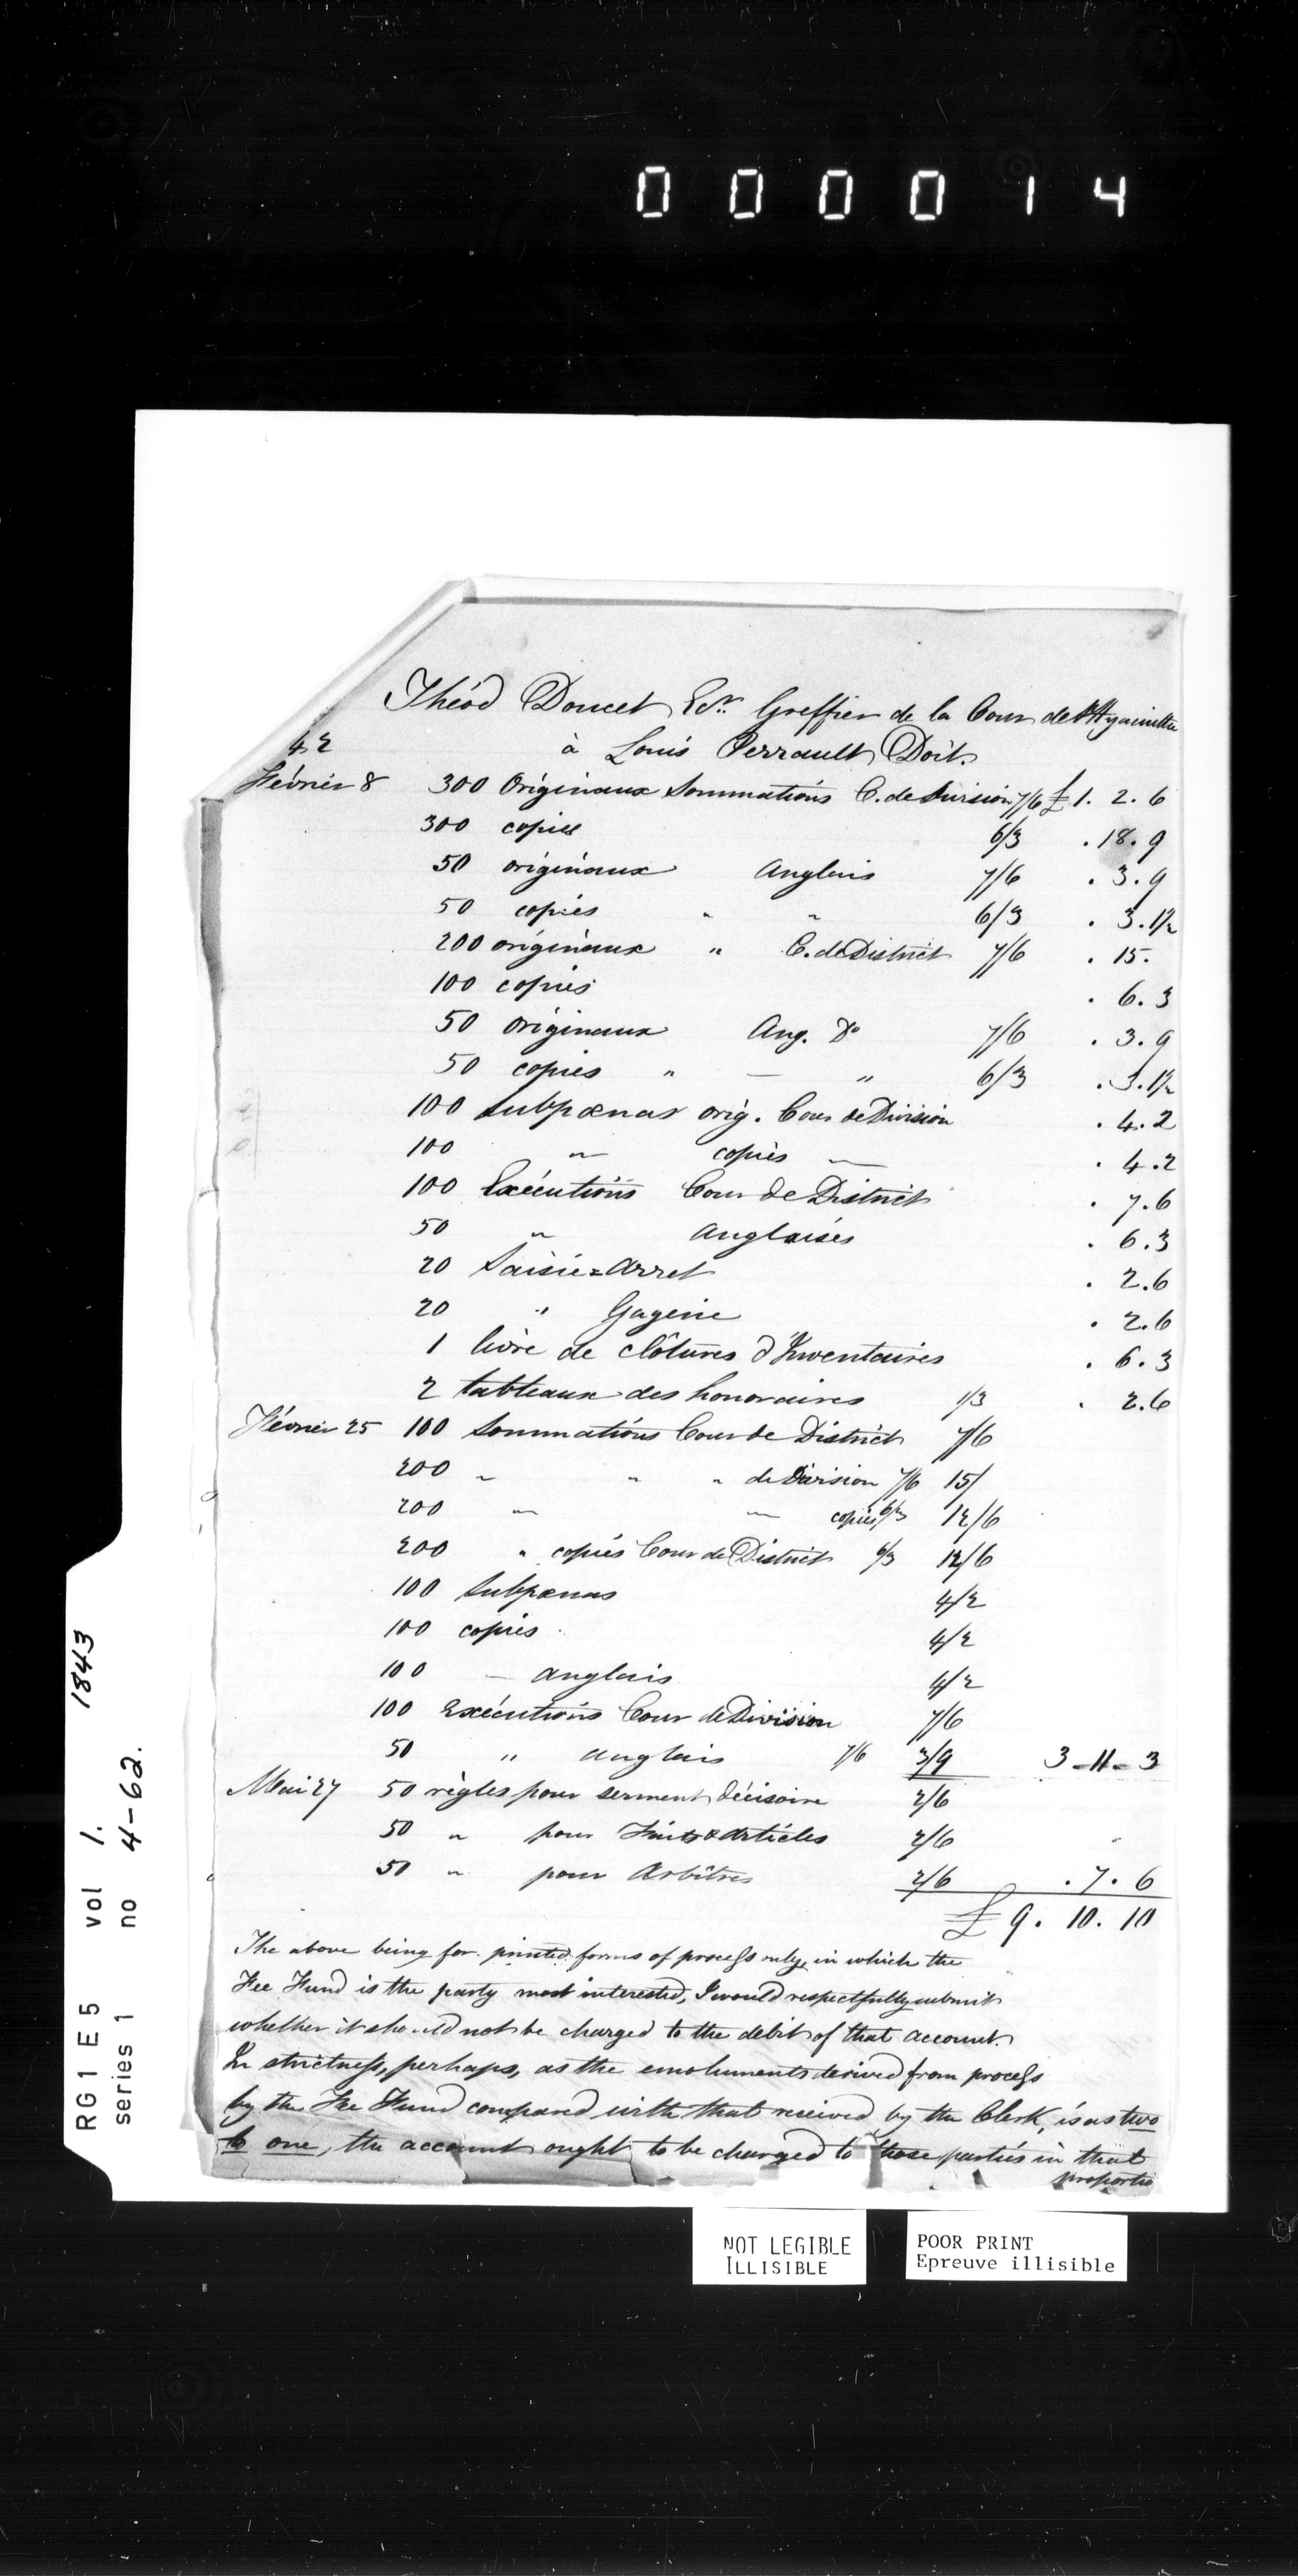 000014
Théod Doucet Ecr. Greffier de la Cour de St Hyacinthe
42 à Louis Perrault Doit.
Février 8 300 Originaux Sommations C. de Division 7/6 £ 1. 2. 6
300 copies 6/3 . 18. 9
50 originaux Anglais 7/6 . 3. 9
50 copies " " 6/3 . 3. 1½
200 originaux " C. de District 7/6 . 15.
100 copies . 6. 3
50 originaux Ang. Do 7/6 . 3. 9
50 copies " — " 6/3 . 3. 1½
100 Subpœnas orig. Cour de Division . 4. 2
100 " copies — . 4. 2
100 Exécutions Cour de District . 7. 6
50 " Anglaises . 6. 3
20 Saisie=Arret . 2. 6
20 " Gagerie . 2. 6
1 livre de clôtures d'Inventaires . 6. 3
2 tableaux des honoraires 1/3 . 2. 6
Février 25 100 Sommations Cour de District 7/6
200 " " " de Division 7/6 15/
200 " — copies 6/3 12/6
200 " copies Cour de District 6/3 12/6
100 Subpœnas 4/2
100 copies 4/2
100 — anglais 4/2
100 Exécutions Cour de Division 7/6
50 " anglais 7/6 3/9 3-11-3
Mai 27 50 règles pour serment décisoire 2/6
50 " pour Faits & Articles 2/6
50 " pour Arbitres 2/6 . 7. 6
£ 9. 10. 10
The above being for printed forms of process only, in which the
Fee Fund is the party most interested, I would respectfully submit
whether it should not be charged to the debit of that account.
In strictness, perhaps, as the emoluments derived from process
by the Fee Fund compared with that received by the Clerk, is as two
to one, the account ought to be charged to those parties in that
proportio
RG1 E5 vol 1. 1843
series 1 no 4-62.
NOT LEGIBLE
ILLISIBLE
POOR PRINT
Epreuve illisible